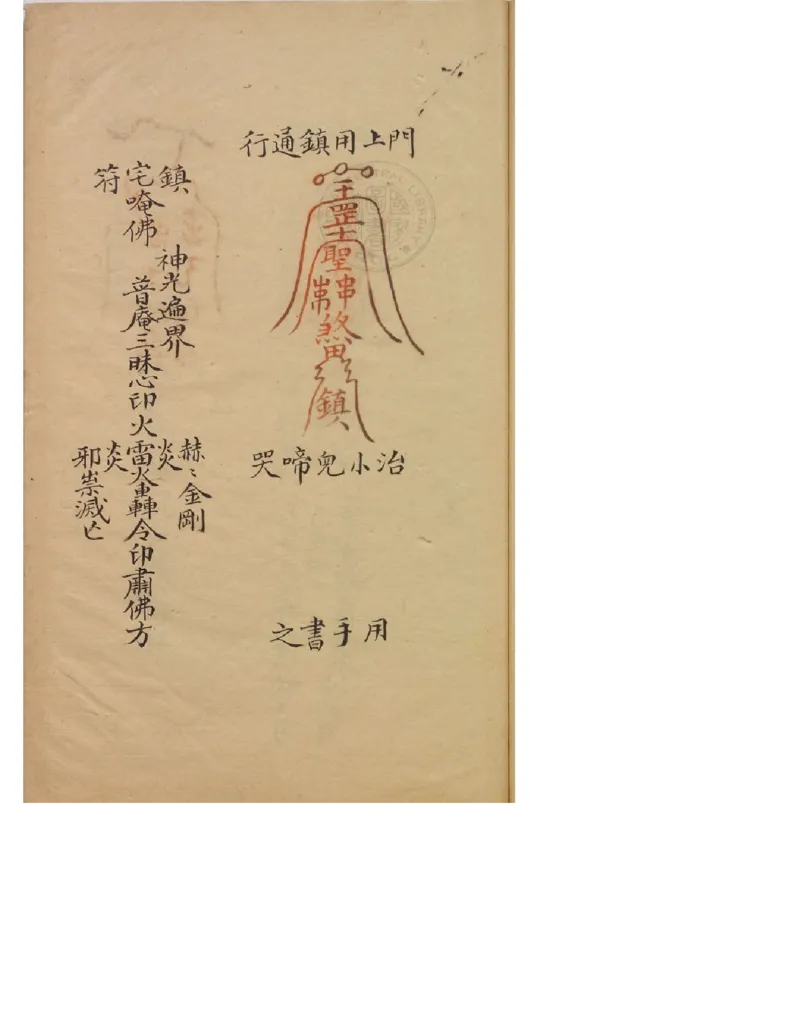 門上用鎮通行
聖
煞
鎮
治小兒啼哭
用手書之
鎮宅符
唵佛
神光遍界
普庵三昧心印火雷
赫〻金剛
炎炎
轟令印肅佛方
邪祟滅亡